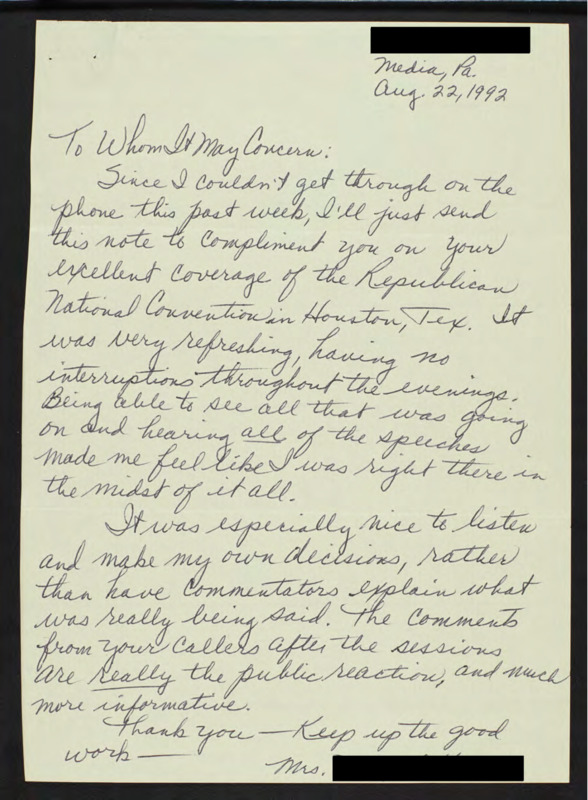 Media, Pa.
Aug. 22, 1992
To Whom It May Concern:
Since I couldn't get through on the
phone this past week, I'll just send
this note to compliment you on your
excellent coverage of the Republican
National Convention in Houston, Tex. It
was very refreshing, having no
interruptions throughout the evenings.
Being able to see all that was going
on and hearing all of the speeches
made me feel like I was right there in
the midst of it all.
It was especially nice to listen
and make my own decisions, rather
than have commentators explain what
was really being said. The comments
from your callers after the sessions
are really the public reaction, and much
more informative.
Thank you — Keep up the good
work —
Mrs.